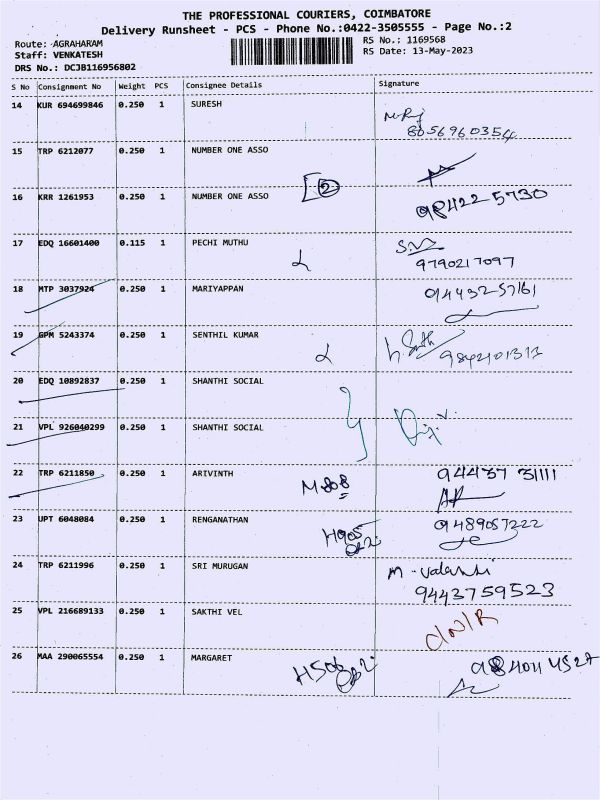 THE PROFESSIONAL COURIERS, COIMBATORE
Delivery Runsheet - PCS - Phone No.:0422-3505555 - Page No.:2
Route: AGRAHARAM
RS No.: 1169568
Staff: VENKATESH
RS Date: 13-May-2023
DRS No.: DCJB116956802
S No Consignment No Weight PCS Consignee Details Signature
14 KUR 694699846 0.250 1 SURESH
8056960354
15 TRP 6212077 0.250 1 NUMBER ONE ASSO
16 KRR 1261953 0.250 1 NUMBER ONE ASSO 2 98422 5730
17 EDQ 16601400 0.115 1 PECHI MUTHU
9790217097
18 MTP 3037924 0.250 1 MARIYAPPAN 94432 57161
19 GPM 5243374 0.250 1 SENTHIL KUMAR
9842101313
20 EDQ 10892837 0.250 1 SHANTHI SOCIAL
21 VPL 926040299 0.250 1 SHANTHI SOCIAL
22 TRP 6211850 0.250 1 ARIVINTH 94437 31111
M808
23 UPT 6048084 0.250 1 RENGANATHAN 9489057222
H905
24 TRP 6211996 0.250 1 SRI MURUGAN
9443759523
25 VPL 216689133 0.250 1 SAKTHI VEL
26 MAA 290065554 0.250 1 MARGARET